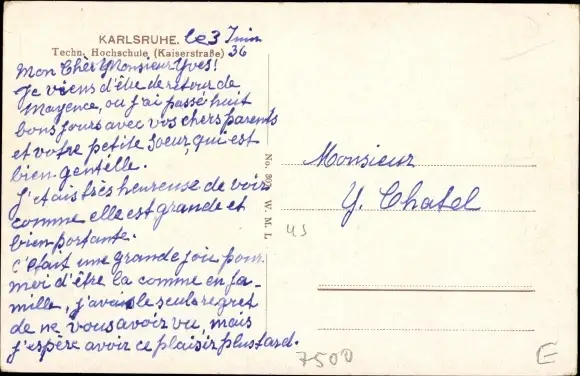 KARLSRUHE. le 3 Juin
Techn. Hochschule (Kaiserstraße) 36
Mon Cher Monsieur Yves!
Je viens d'être de retour de
Mayence, ou j'ai passé huit
bons jours avec vos chers parents
et votre petite soeur, qui est
bien gentelle.
J'étais très heureuse de voir
comme elle est grande et
bien portante.
C'était une grande joie pour
moi d'être la comme en fa-
mille, j'avais le seul regret
de ne vous avoir vu, mais
j'espère avoir ce plaisir plus tard.
W. M. L.
Monsieur
Y. Chatel
45
7500
E